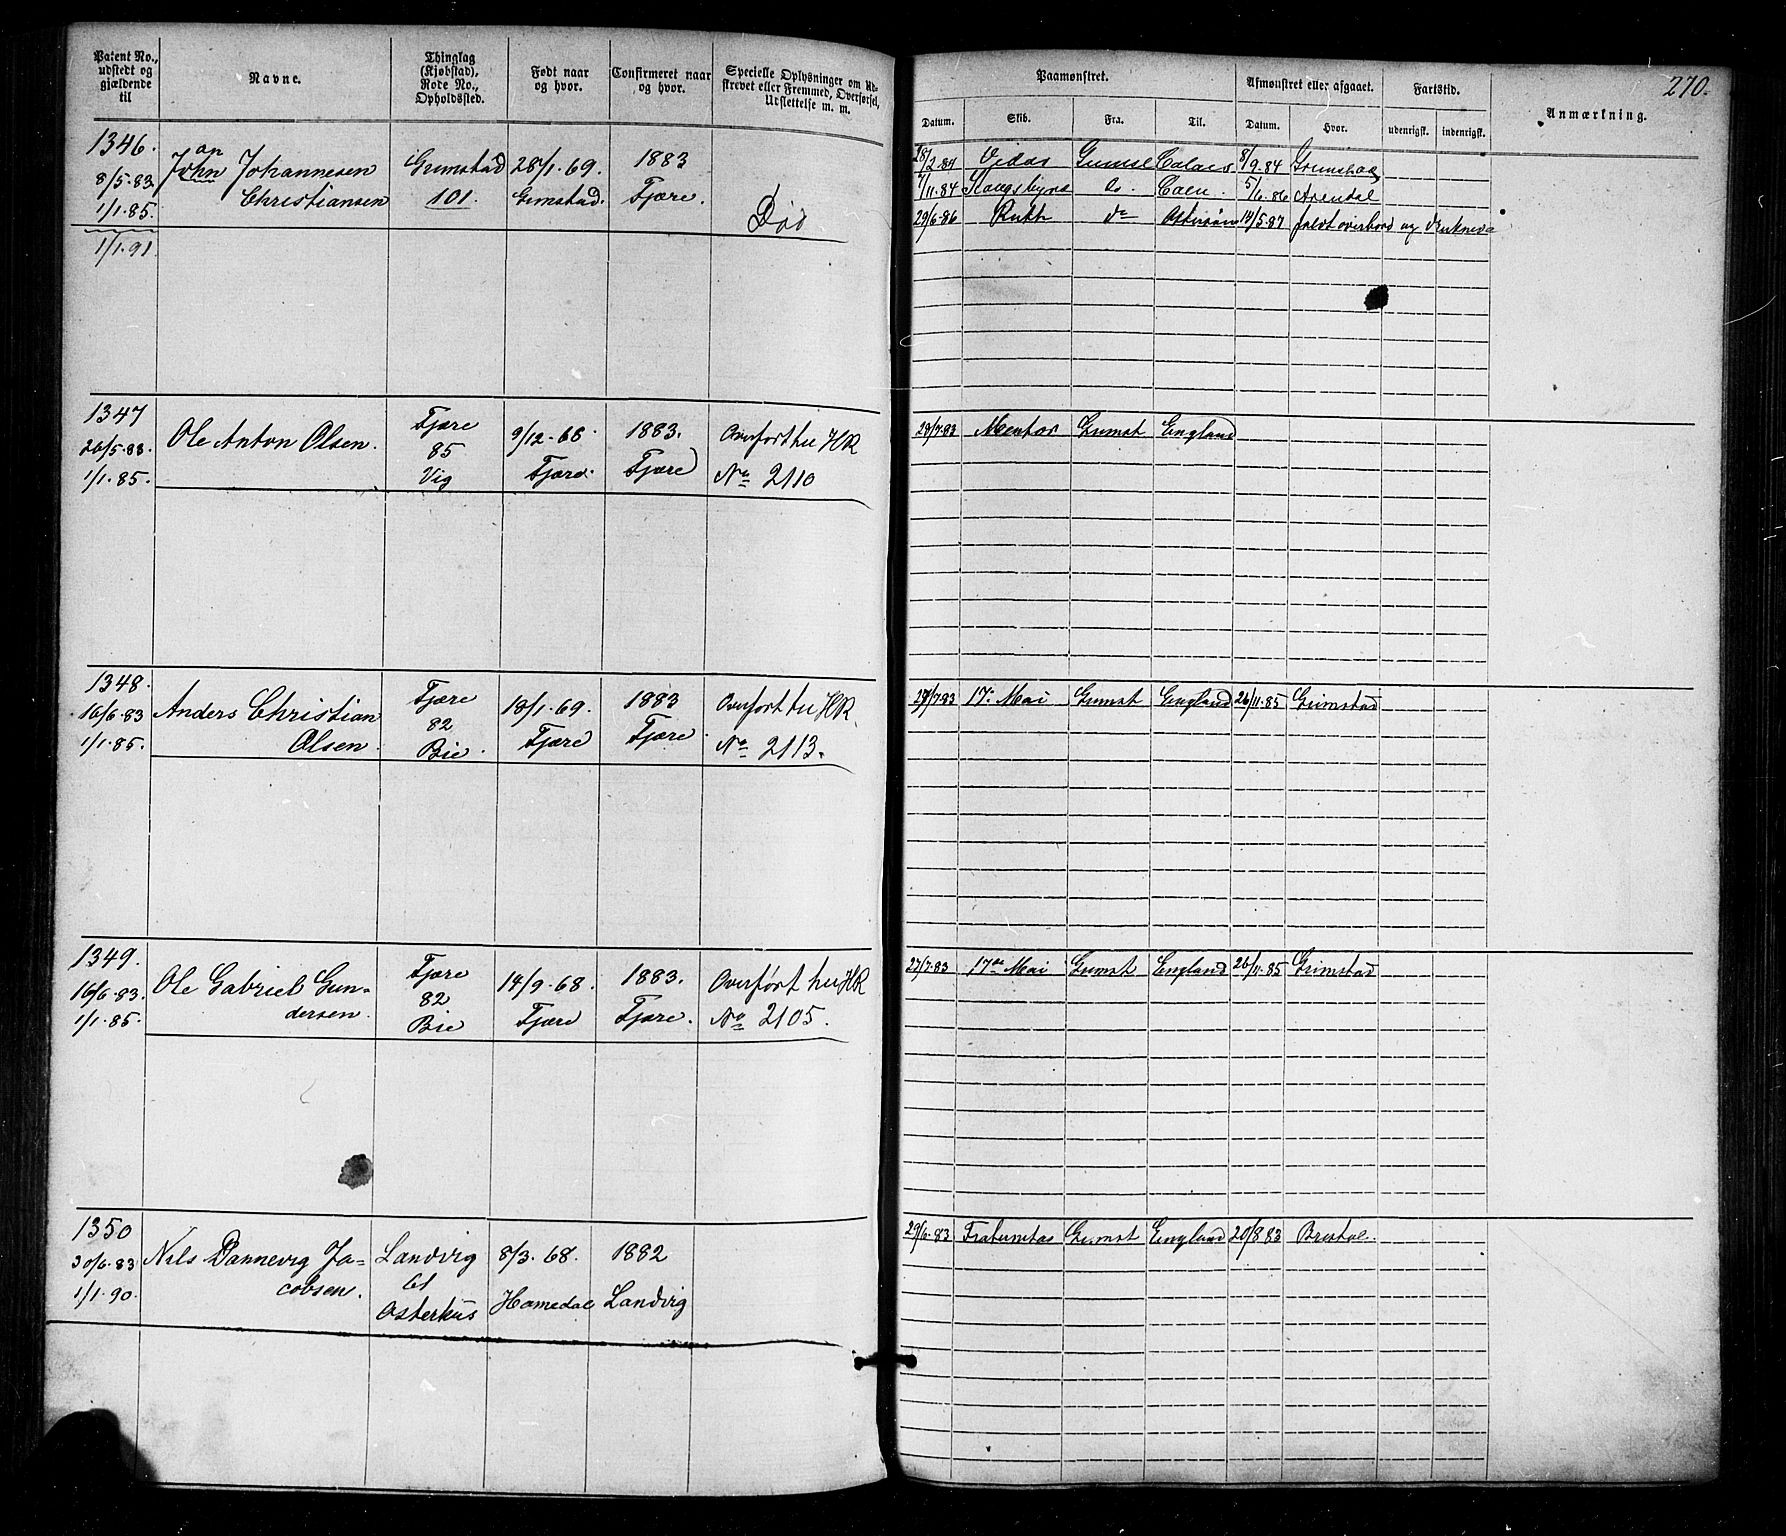 Patent No., udstedt og gjældende til
Navne.
Thinglag (Kjøbstad), Rode No., Opholdssted.
Født naar og hvor.
Confirmeret naar og hvor.
Specielle Oplysninger om
strevet eller Fremmed, Overførsel,
Udslettelse m. m.
Paamønstret.
Afmønstret eller afgaaet.
Fartstid.
Anmærkning.
270.
Datum.
Skib.
Fra.
Til.
Datum.
Hvor.
udenrigsk.
indenrigsk.
1346.
8/5.83.
1/1.85.
1/1.91
an
John Johannesen
Christiansen
Grimstad
101.
28/1.69.
Grimstad.
1883
Fjære.
Død
18/2.84 Vidar Calais 8/9.84 Grimstad
7/11.84 do. Caen. 5/6.86 Arendal
29/6.86 Ruth do Østersøen 18/5.87 faldt overbord og druknede
1347
20/5.83.
1/1.85.
Ole Anton Olsen.
Fjære
85
Vig
9/12.68.
Fjære.
1883.
Fjære
Overført til HR
No 2110
24/7.83 Mentor Grimst England
1348.
16/6.83
1/1.85.
Anders Christian
Olsen.
Fjære
82
Bie.
18/1.69.
Fjære
1883
Fjære.
Overført til HR.
No 2113.
27/7.83 17. Mai Grimst England 26/11.85 Grimstad
1349.
16/6.83.
1/1.85.
Ole Gabriel Gun-
dersen.
Fjære
82
Bie
14/9.68.
Fjære
1883.
Fjære.
Overført til HR
No 2105.
27/7.83 17de Mai Grimst England 26/11.85 Grimstad
1350
30/6.83
1/1.90.
Nils Dannevig Ja-
cobsen.
Landvig
61
Østerhus
8/3.68.
Homedal
1882
Landvig
29/6.83 Fratumtas Grimst England 20/8.83 Bristol.